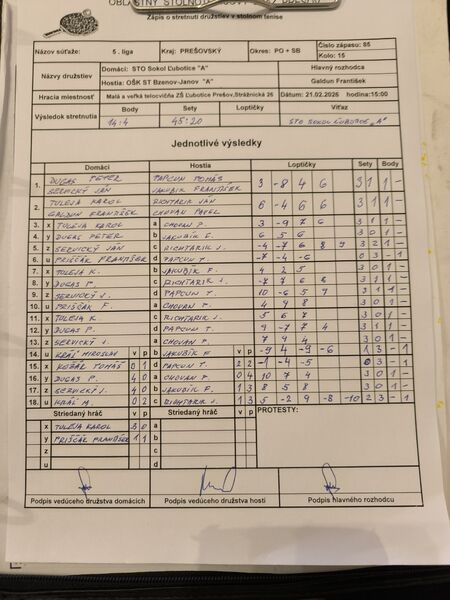 Zápis o stretnutí družstiev v stolnom tenise
Názov súťaže: 5. liga Kraj: PREŠOVSKÝ Okres: PO + SB Číslo zápasu: 85
Kolo: 15
Názvy družstiev Domáci: STO Sokol Ľubotice "A" Hlavný rozhodca
Hostia: OŠK ST Bzenov-Janov "A" Galdun František
Hracia miestnosť Malá a veľká telocvičňa ZŠ Ľubotice Prešov,Strážnická 26 Dátum: 21.02.2026 hodina:15:00
Výsledok stretnutia Body Sety Loptičky Víťaz
14:4 45:20 STO SOKOL ĽUBOTICE "A"
Jednotlivé výsledky
Domáci Hostia Loptičky Sety Body
1. DUGAS PETER PAPCUN TOMÁŠ 3 -8 4 6 3 1 1 -
SERVICKÝ JÁN JAKUBÍK FRANTIŠEK
2. TULEJA KAROL RICHTARIK JÁN 6 -4 6 6 3 1 1 -
GALDUN FRANTIŠEK CHOVAN PAVEL
3. x TULEJA KAROL a CHOVAN P. 3 -9 7 6 3 1 1 -
4. y DUGAS PETER b JAKUBÍK F. 6 5 6 3 0 1 -
5. z SERVICKÝ JÁN c RICHTARIK J. -4 -7 6 8 9 3 2 1 -
6. u PRIŠČÁK FRANTIŠEK d PAPCUN T. -7 -4 -6 0 3 - 1
7. x TULEJA K. b JAKUBÍK F. 4 2 5 3 0 1 -
8. y DUGAS P. c RICHTARIK J. -7 7 6 8 3 1 1 -
9. z SERVICKÝ J. d PAPCUN T. 10 -6 5 7 3 1 1 -
10. u PRIŠČÁK F. a CHOVAN P. 4 9 8 3 0 1 -
11. x TULEJA K. c RICHTARIK J. 5 6 7 3 0 1 -
12. y DUGAS P. d PAPCUN T. 9 -7 7 4 3 1 1 -
13. z SERVICKÝ J. a CHOVAN P. 7 9 4 3 0 1 -
14. u KRÁĽ MIROSLAV v p b JAKUBÍK F. v p -9 4 -9 -6 1 3 - 1
15. x TOMÁŠ 0 1 d PAPCUN T. 2 2 -1 -4 -5 0 3 - 1
16. y DUGAS P. 4 0 a CHOVAN P. 0 4 10 7 4 3 0 1 -
17. z SERVICKÝ J. 4 0 b JAKUBÍK F. 1 3 8 5 8 3 0 1 -
18. u KRÁĽ M. 0 2 c RICHTARIK J. 1 3 5 -2 9 -8 -10 2 3 - 1
Striedaný hráč v p Striedaný hráč v p PROTESTY:
x TULEJA KAROL 3 0 a
y PRIŠČÁK FRANTIŠEK 1 1 b
z c
u d
Podpis vedúceho družstva domácich Podpis vedúceho družstva hostí Podpis hlavného rozhodcu